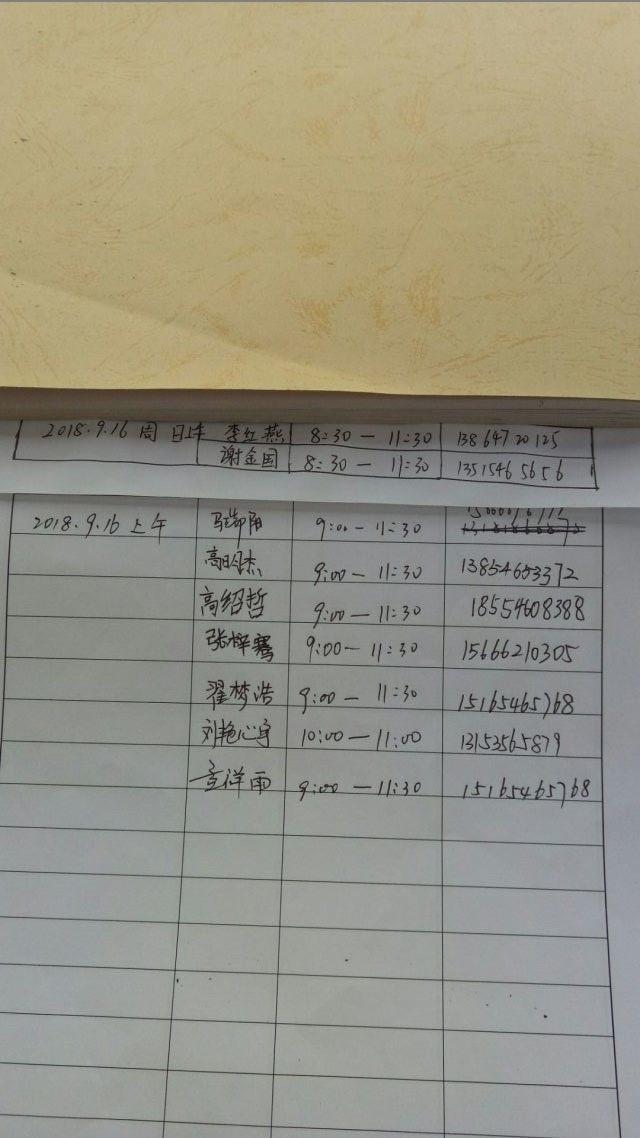 2018.9.16 周日上午 李红燕 8:30 — 11:30 13864720125
谢金国 8:30 — 11:30 13515465656
2018.9.16 上午 9:00 — 11:30
高明杰 9:00 — 11:30 13854653372
高绍哲 9:00 — 11:30 18554608388
张梓骞 9:00 — 11:30 15666210305
翟梦浩 9:00 — 11:30 15165465768
刘艳心宇 10:00 — 11:00 13153565879
祥雨 9:00 — 11:30 15165465768